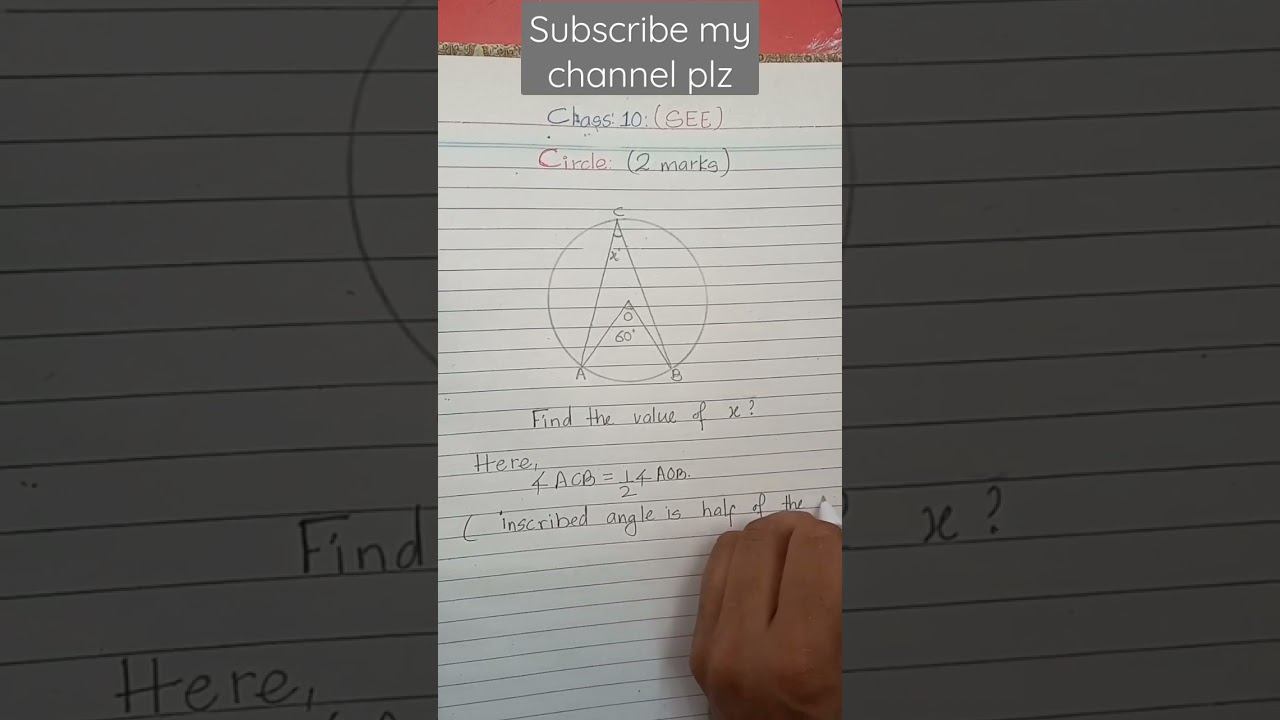 Subscribe my
channel plz
Class: 10: (SEE)
Circle: (2 marks)
C
x°
O
60°
A B
Find the value of x?
Here,
∡ACB = 1/2 ∡AOB.
( inscribed angle is half of the
Find
x?
Here,